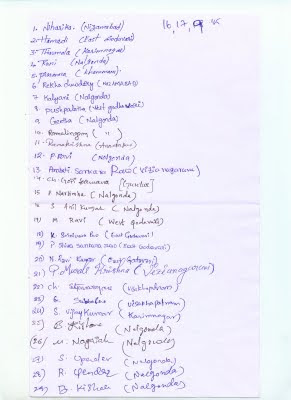 16, 17, K
1. Niharika. (Nizamabad)
2. Hemadi (East Godavari)
3. Thirumala (Karimnagar)
4. Rani (Nalgonda)
5. prasanna (khammam)
6. Rekha chowdary (NIZAMABAD)
7. Kalyani (Nalgonda)
8. pushpalatha (West godhavari)
9. Geetha (Nalgonda)
10. Ramalingam ( " )
11. Ramakrishna (Anantapur)
12. P. Ravi (nalgonda)
13 Ambati Sankara Rao (Vizianagaram)
14 Ch. Gopi (Guntur)
15 P Narsimha (Nalgonda)
S Anil Kumar (Nalgonda)
M Ravi (West Godavari)
18 K. Srinivasa Rao (East Godavari)
19 P Shiva Sankara (East Godavari)
20) N. Ravi Kumar (East Godavari)
21) P. Murali Krishna (Vizianagaram)
22) ch. (visakhapatnam)
23) (visakhapatnam)
24) S. Vijay Kumar (Karimnagar)
25) (Nalgonda)
26) M. Nagaiah (Nalgonda)
27) S. Upender (Nalgonda)
28) R. (Nalgonda)
29) B. Kishan (Nalgonda)